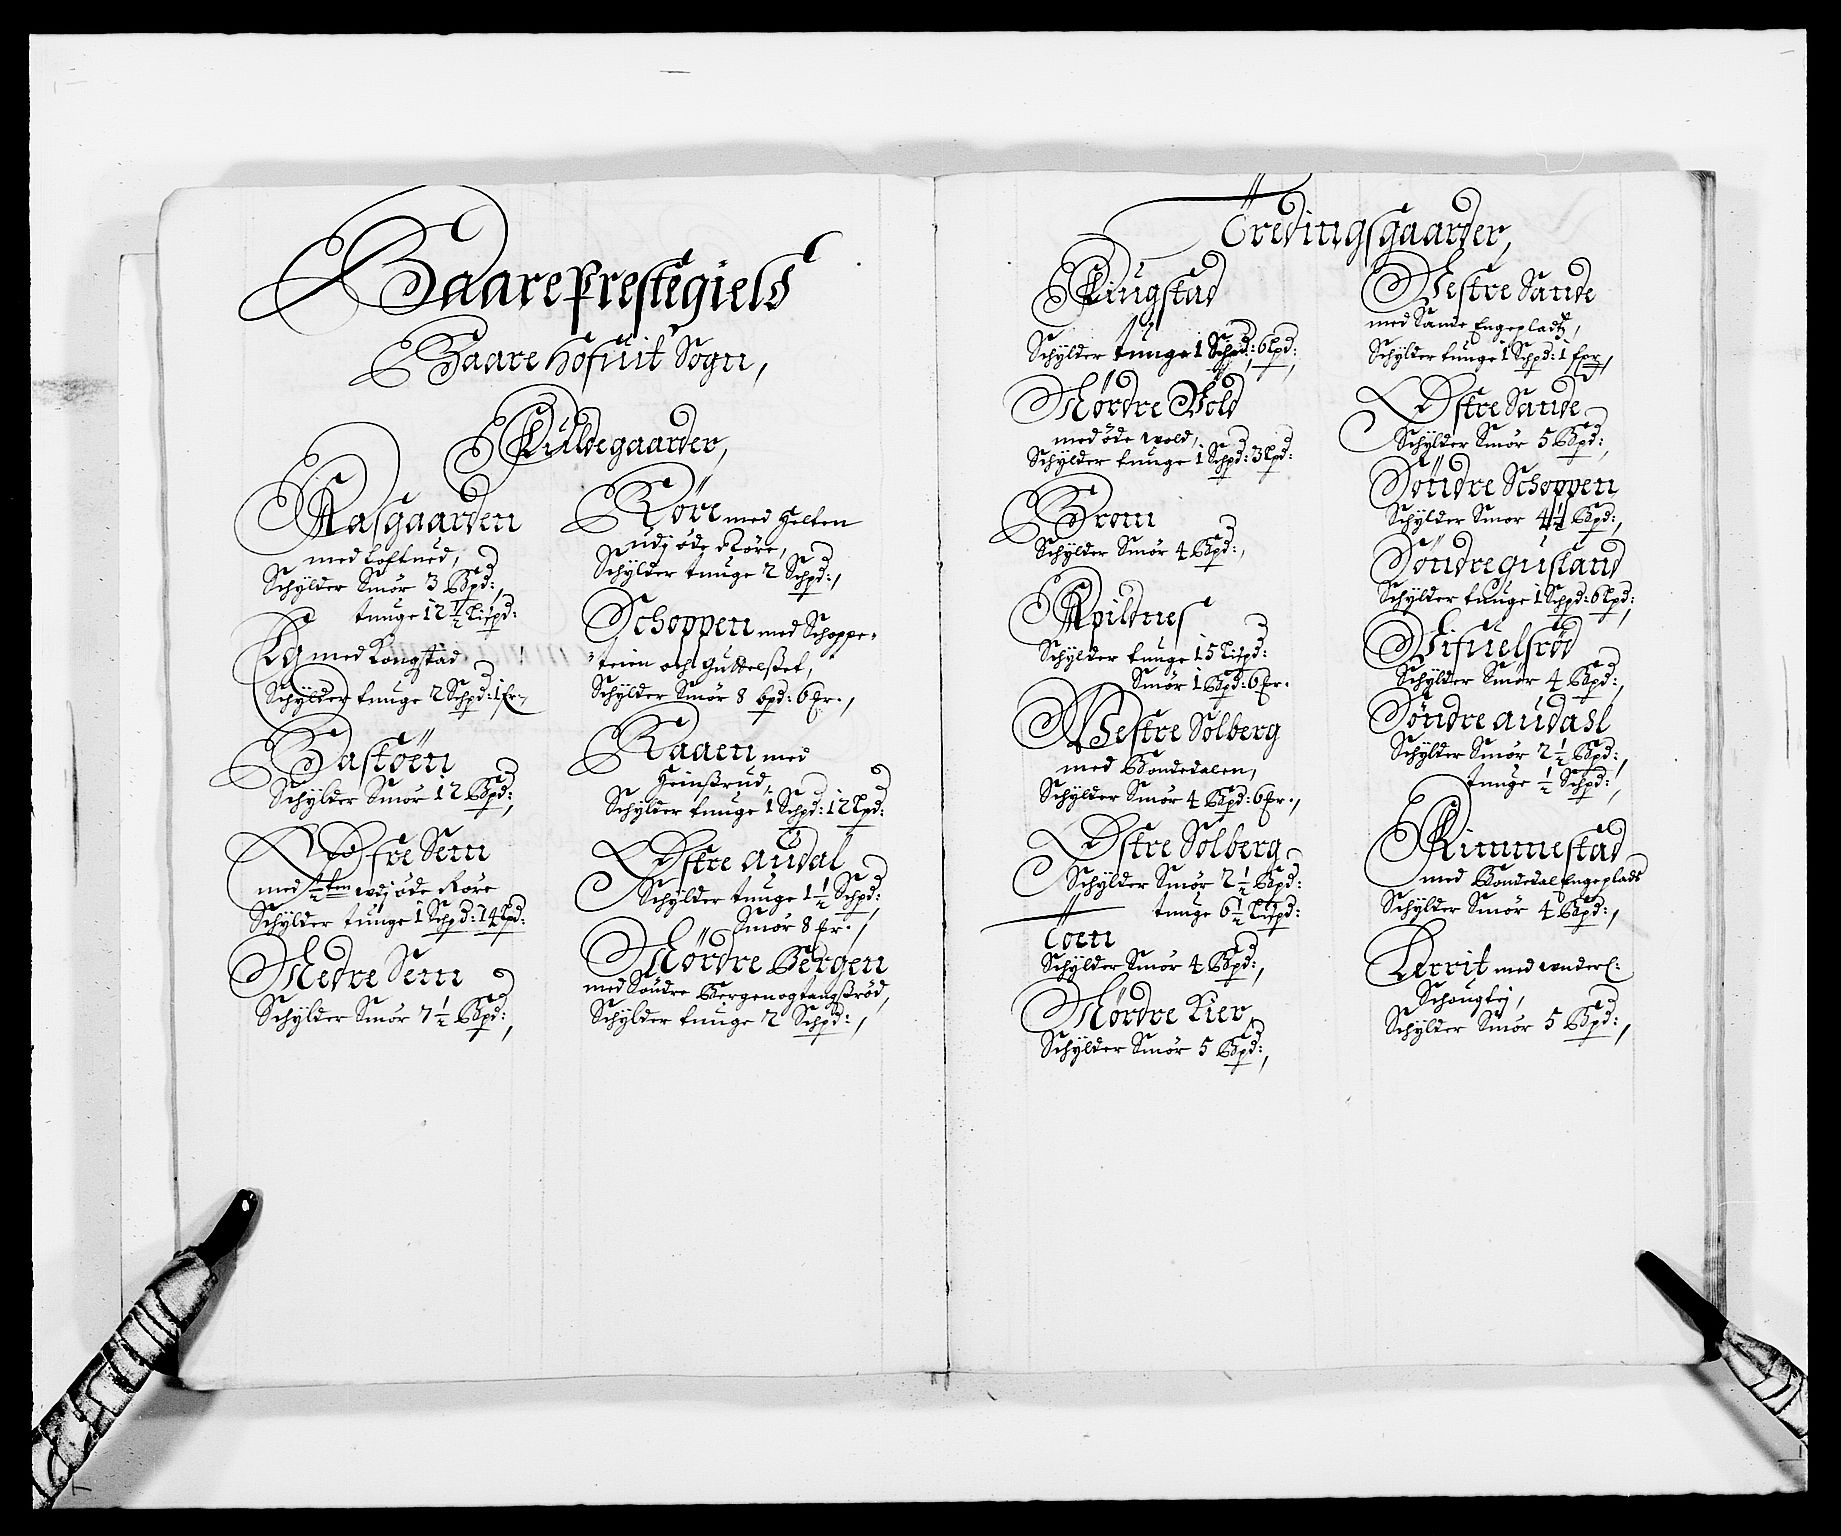 Baare Prestegield
Baare Hofuit Sogn,
Fuldegaarder,
Aasgaarden
med Loftued,
Schÿlder Smör 3 Bpd:,
tunge 12 1/2 Lispd:
Eg med Kongstad
Schÿlder tunge 2 Schpd: 1 fr,
Bastöen
Schÿlder Smör 12 Bpd:,
Øfre Sem
med wdj öde Röre
Schÿlder tunge 1 Schpd: 14 Lpd:
Nedre Sem
Schÿlder Smör 7 1/2 Bpd:,
Röre med Helten
udj öde Röre,
Schÿlder tunge 2 Schpd:,
Schoppen med Schoppe=
=teien och
Schÿlder Smör 8 bpd: 6 fr.,
Raaen med
Heinssrud,
Schÿlder tunge 1 Schpd: 12 Lpd:
Østre Audal
Schÿlder tunge 1 1/2 Schpd:,
Smör 8 fr.,
Nördre Bergen
med Söndre Bergen og Langssröd,
Schÿlder tunge 2 Schpd:,
Ödingsgaarder,
Ringstad
Schÿlder tunge 1 Schpd: 6 Lpd:,
Nördre Vold
med öde wold,
Schÿlder tunge 1 Schpd: 3 Lpd:
Brom
Schÿlder Smör 4 Bpd:,
Apildnes
Schÿlder tunge 15 Lispd:
Smör 1 Bpd: 6 fr.
Westre Solberg
med Bondedalen,
Schÿlder Smör 4 Bpd: 6 fr.,
Østre Solberg
Schÿlder Smör 2 1/2 Bpd:
tunge 6 1/2 Lispd:
Töen
Schÿlder Smör 4 Bpd:,
Nördre Kier,
Schÿlder Smör 5 Bpd:,
Vestre Sande
med Sande Engepladtz,
Schÿlder tunge 1 Schpd: 1 fr,
Østre Sande
Schÿlder Smör 5 Bpd:,
Söndre Schoppen
Schÿlder Smör 4 1/2 Bpd:,
Söndre Gusland
Schÿlder tunge 1 Schpd: 6 Lpd:
Vifuelsröd
Schÿlder Smör 4 Bpd:,
Söndre Audasl
Schÿlder Smör 2 1/2 Bpd:,
tunge 1/2 Schpd:,
Rimmestad
med Bondedal Engeplads
Schÿlder Smör 4 Bpd:,
Lervit med
Schougtej,
Schÿlder Smör 5 Bpd:,